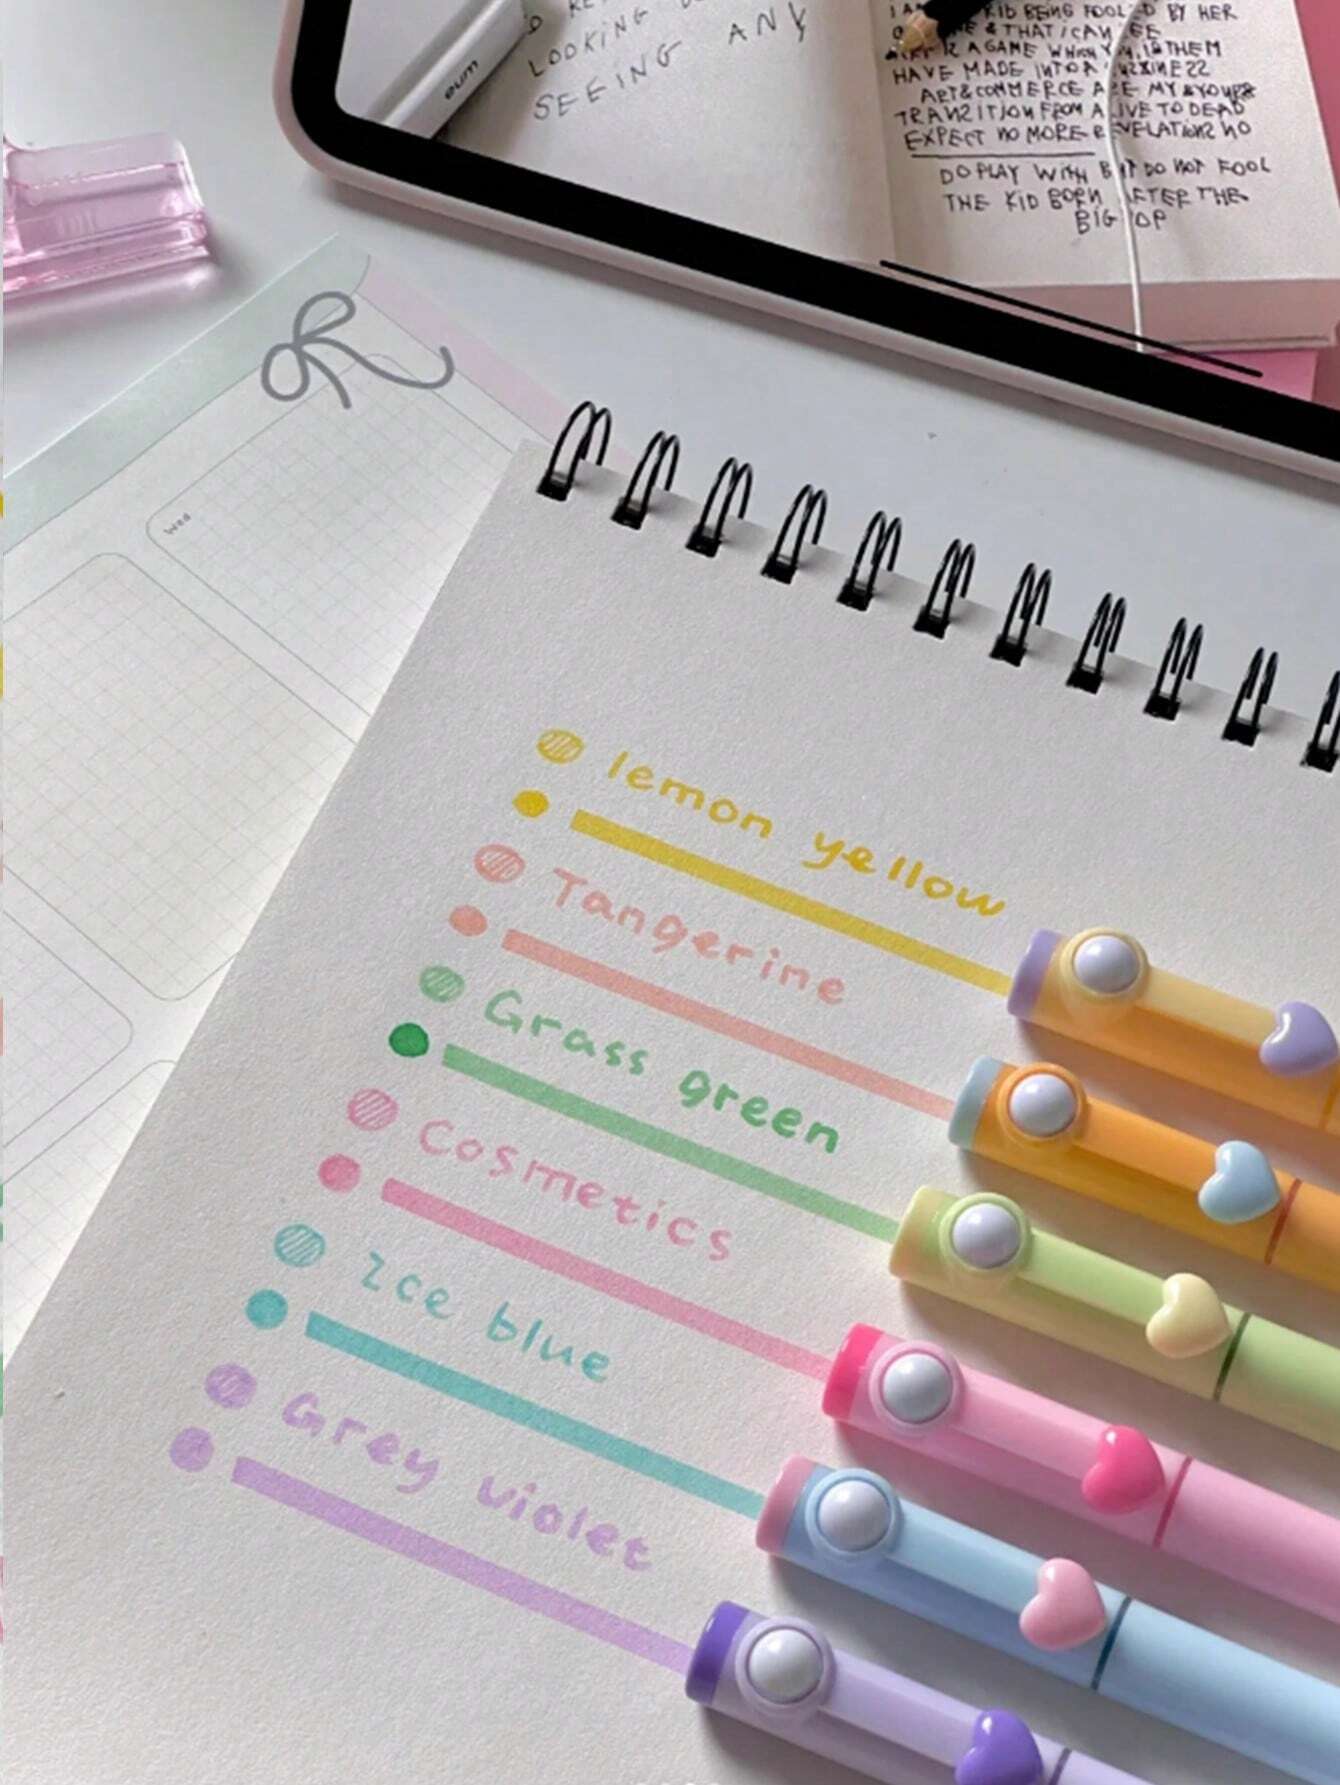 LOOKING
SEEING ANY
KID BEING FOOLED BY HER
& THAT I CAN
A GAME WHEN YOU, I & THEM
HAVE MADE INTO A BUZINEZZ
ART & COMMERCE ARE MY & YOURS
TRANZITION FROM ALIVE TO DEAD
EXPECT NO MORE REVELATIONS NO
DO PLAY WITH BUT DO NOT FOOL
THE KID BORN AFTER THE
BIG POP
eum
Wed
lemon yellow
Tangerine
Grass green
Cosmetics
Ice blue
Grey violet